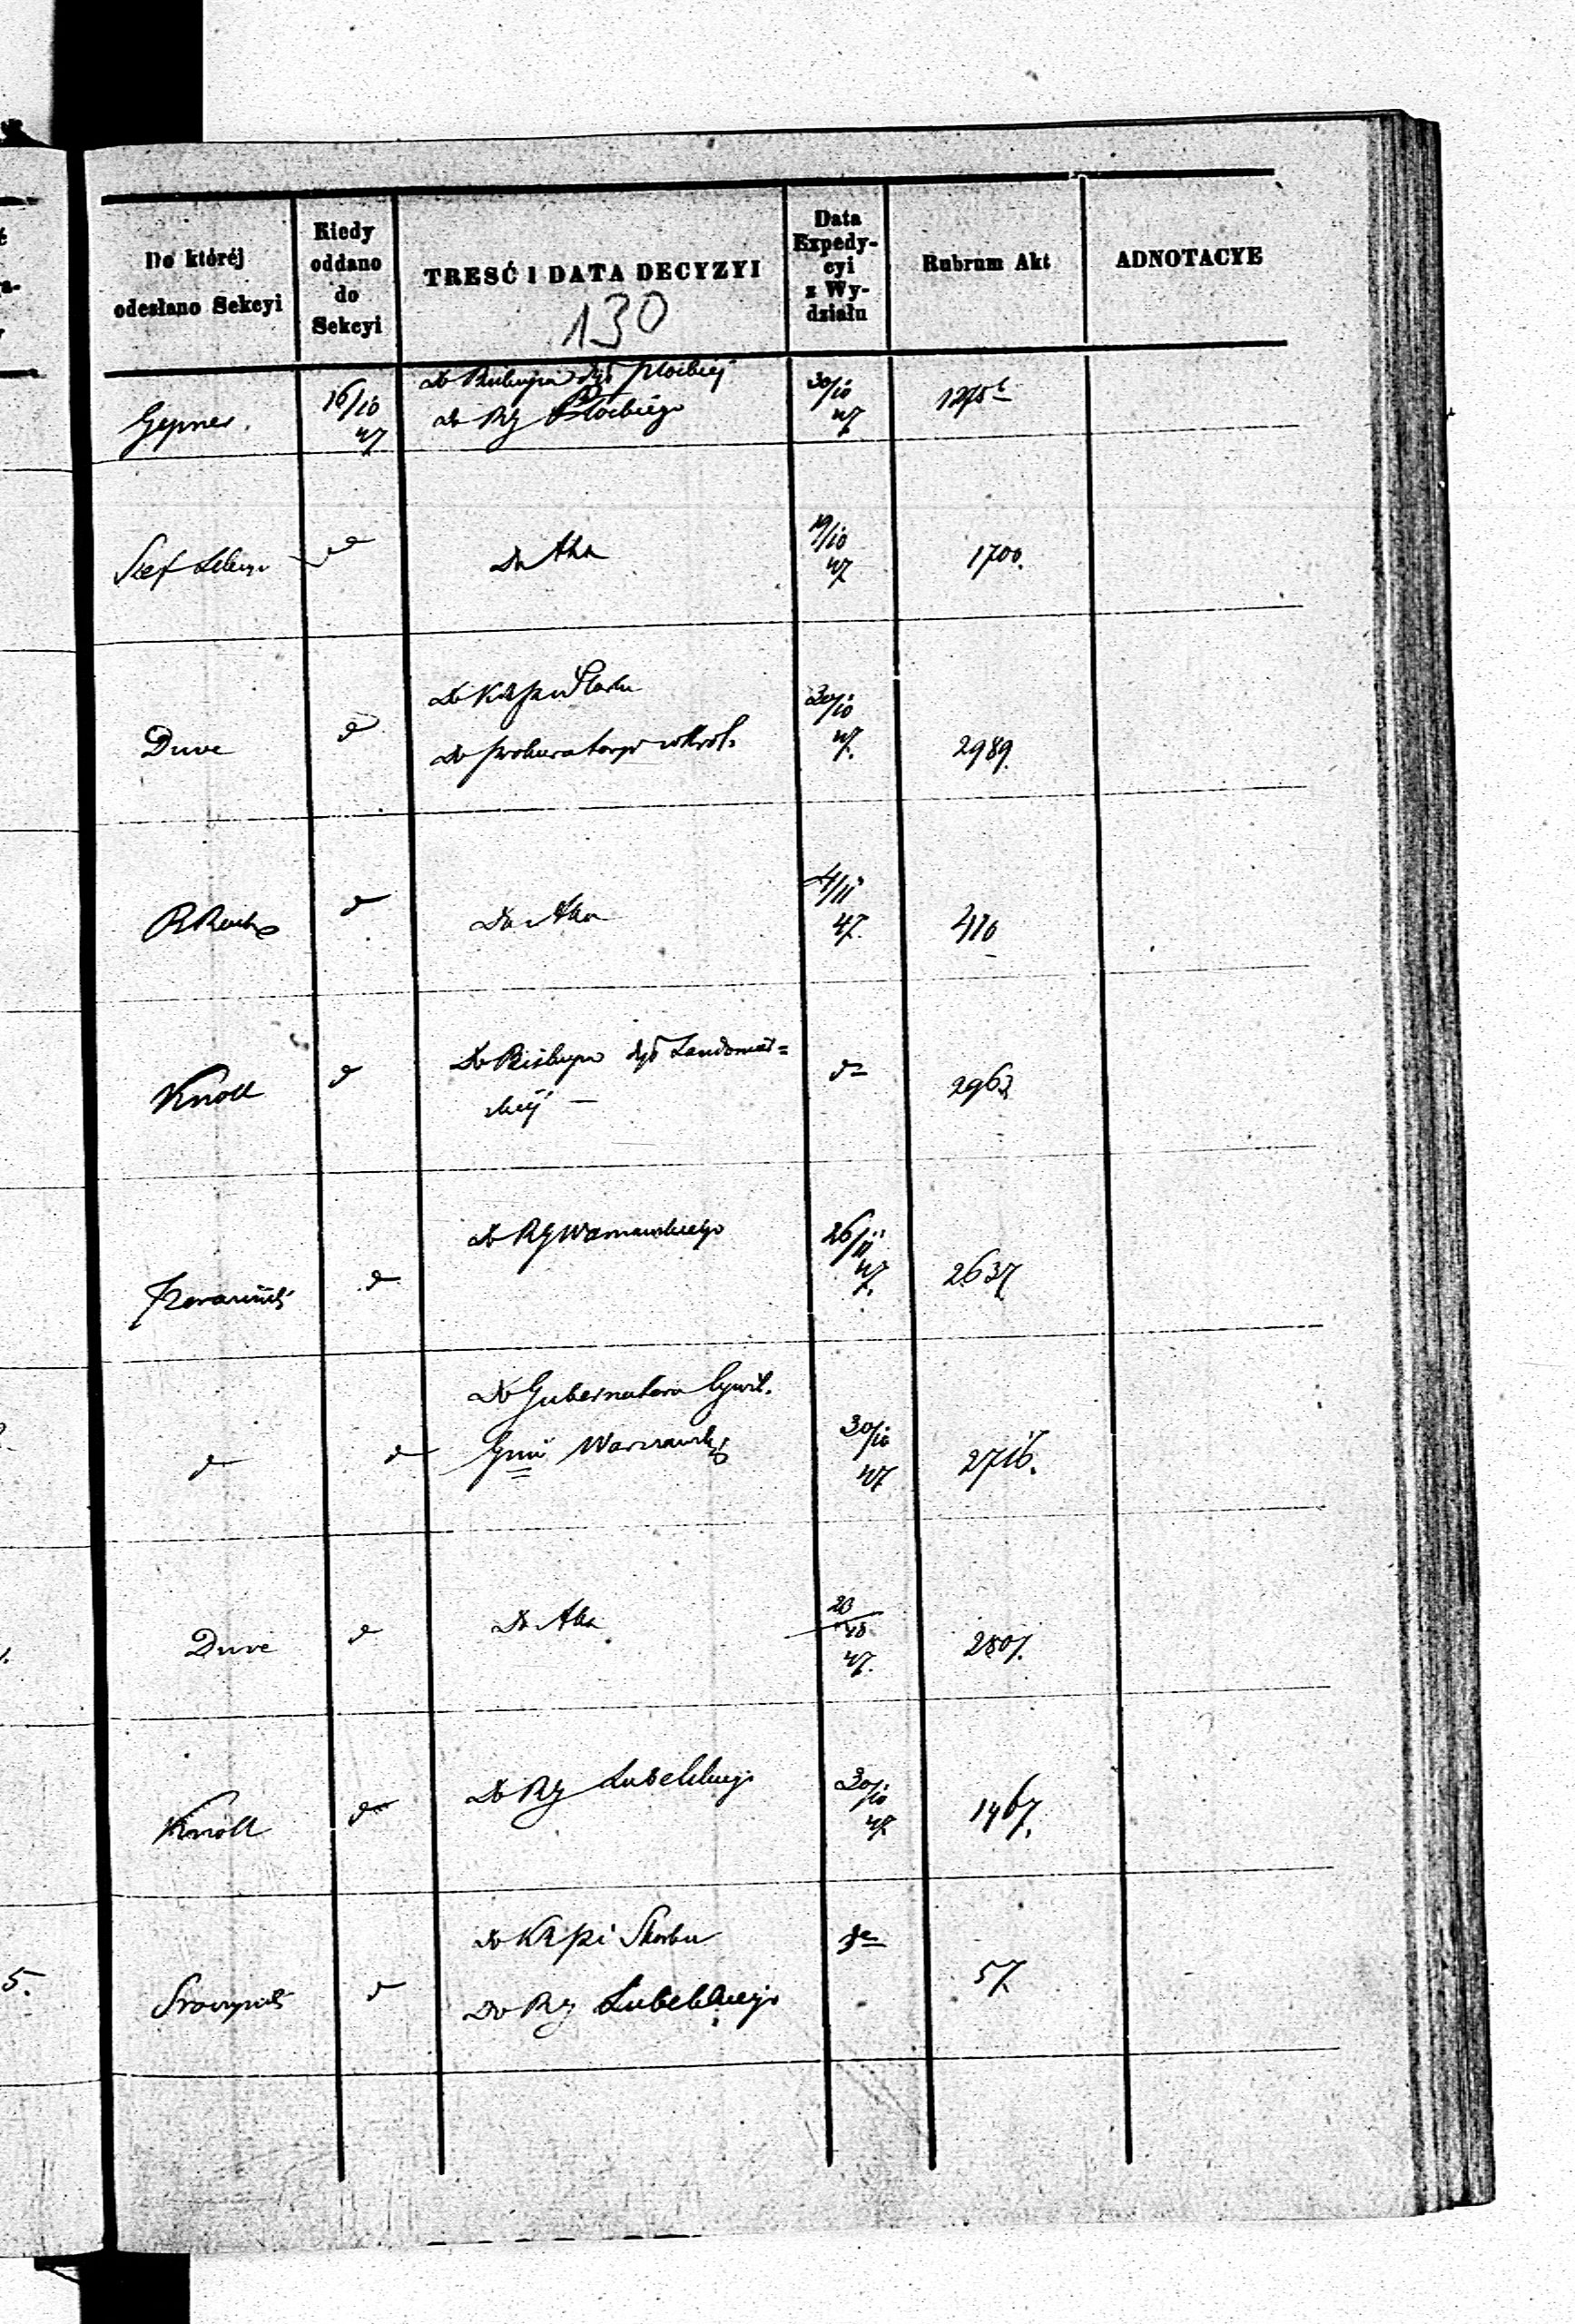 Do któréj
odesłano Sekcyi
Kiedy
oddano
do
Sekcyi
TRESĆ I DATA DECYZYI
130
Data
Expedy-
cyi
z Wy-
działu
Rubrum Akt
ADNOTACYE
Gepner.
16/10
47
Do Biskupa Dyó Płockiej
Do RG Płockiego
30/10
47
Szef
do
Do Akt
19/10
47
1700.
Duve
do
Do KRPiSkarbu
Do Prokuratoryi wKról.
30/10
47.
2989.
do
Do Akt
4/11
47.
410
Knoll
do
Do Biskupa dyó Sandomir=
skiej —
do
2963
do
Do RG Warszawskiego
26/11
47.
2637
do
do
Do Gubernatora Cywil.
Gnii Warszawskiej
30/10
47
2716.
Duve
do
Do Akt
20
10
47.
2801.
Knoll
do
Do RG Lubelskiego
30/10
47
1467.
do
Do KRPi Skarbu
Do RG Lubelskiego
do
57
5.